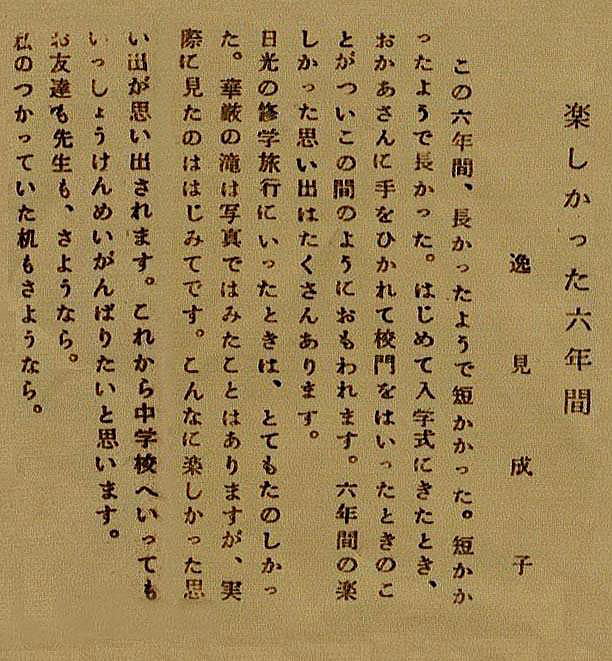 楽しかった六年間
逸見成子
この六年間、長かったようで短かかった。短かか
ったようで長かった。はじめて入学式にきたとき、
おかあさんに手をひかれて校門をはいったときのこ
とがついこの間のようにおもわれます。六年間の楽
しかった思い出はたくさんあります。
日光の修学旅行にいったときは、とてもたのしかっ
た。華厳の滝は写真ではみたことはありますが、実
際に見たのははじみてです。こんなに楽しかった思
い出が思い出されます。これから中学校へいっても
いっしょうけんめいがんばりたいと思います。
お友達も先生も、さようなら。
私のつかっていた机もさようなら。